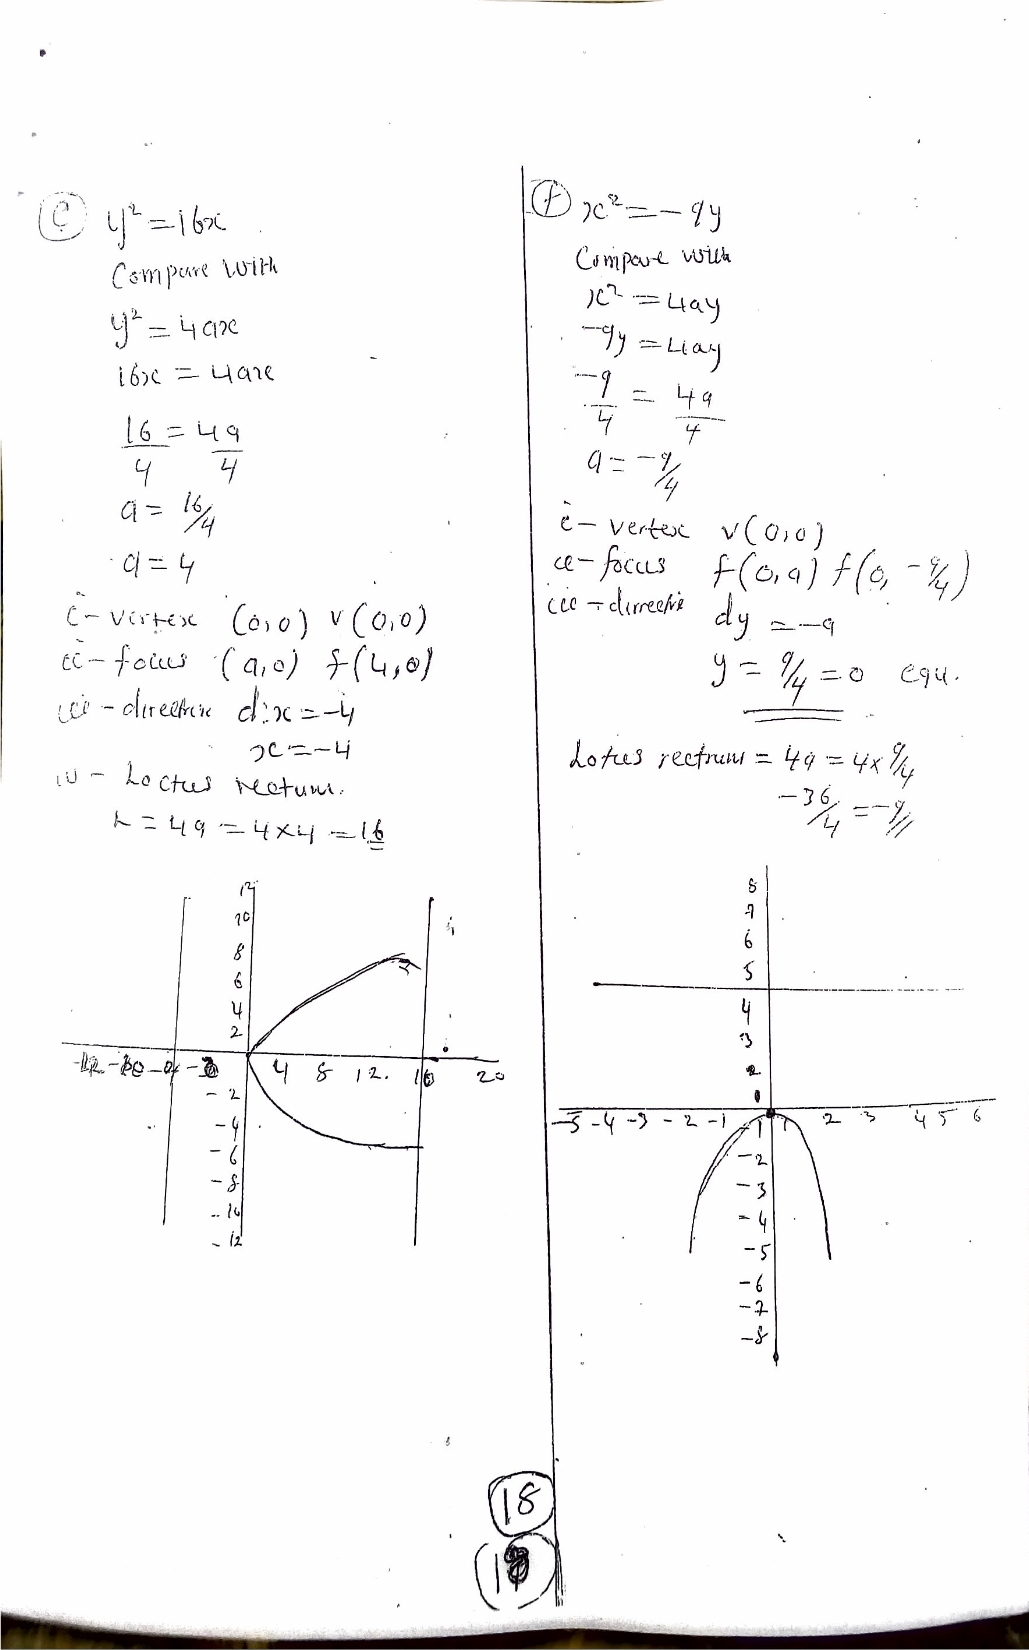 (e) y² = 16x
Compare with
y² = 4ax
16x = 4ax
16/4 = 4a/4
a = 16/4
a = 4
i - vertex (0,0) v(0,0)
ii - focus (a,0) f(4,0)
iii - directrix d:x = -4
x = -4
iv - Loctus rectum.
L = 4a = 4×4 = 16
12
10
8
6
4
2
4 8 12. 16 20
-2
-4
-6
-8
-10
-12
(f) x² = -9y
Compare with
x² = 4ay
-9y = 4ay
-9/4 = 4a/4
a = -9/4
i - vertex v(0,0)
ii - focus f(0,a) f(0, -9/4)
iii - directrix dy = -a
y = 9/4 = 0 equ.
Lotus rectrum = 4a = 4×9/4
-36/4 = -9//
8
7
6
5
4
3
2
1
-5 -4 -3 -2 -1 1 2 3 4 5 6
-1
-2
-3
-4
-5
-6
-7
-8
18